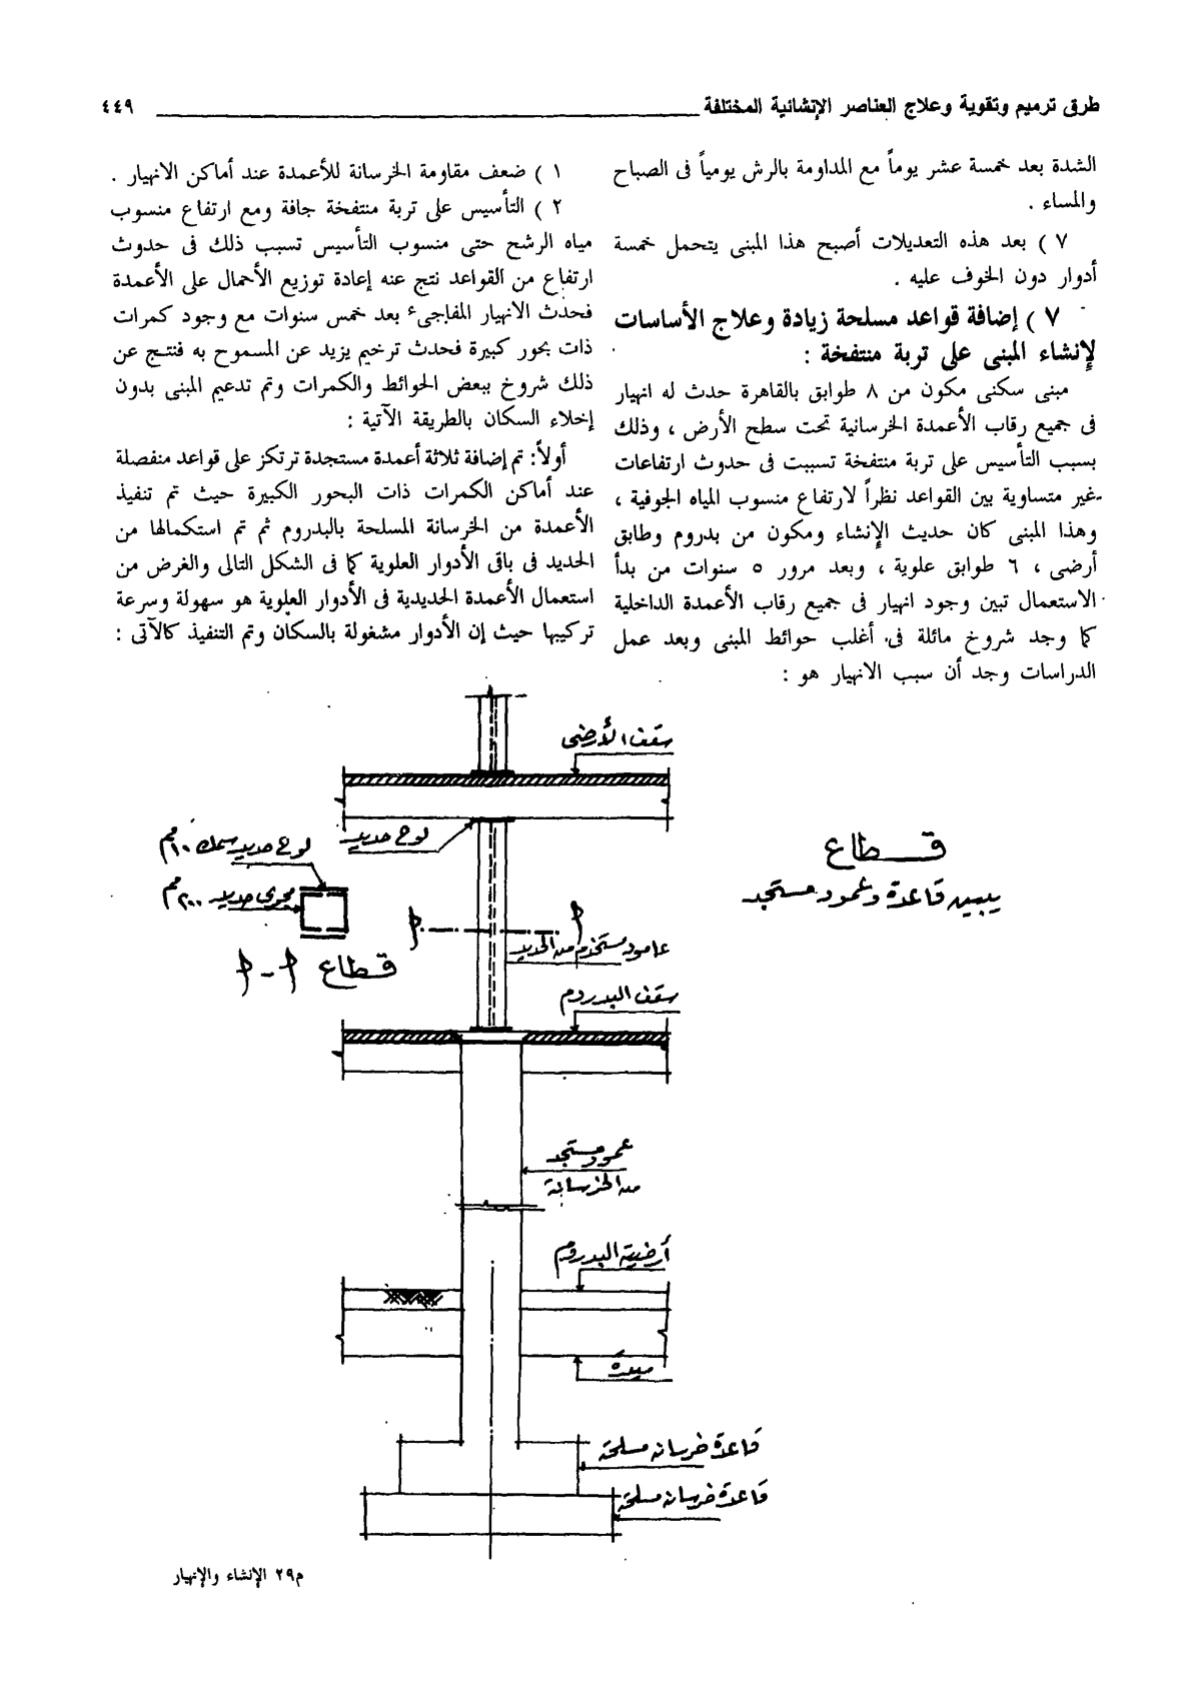 طرق ترميم وتقوية وعلاج العناصر الإنشائية المختلفة ٤٤٩
الشدة بعد خمسة عشر يوماً مع المداومة بالرش يومياً فى الصباح
والمساء .
٧ ) بعد هذه التعديلات أصبح هذا المبنى يتحمل خمسة
أدوار دون الخوف عليه .
٧ ) إضافة قواعد مسلحة زيادة وعلاج الأساسات
لإنشاء المبنى على تربة منتفخة :
مبنى سكنى مكون من ٨ طوابق بالقاهرة حدث له انهيار
فى جميع رقاب الأعمدة الخرسانية تحت سطح الأرض ، وذلك
بسبب التأسيس على تربة منتفخة تسببت فى حدوث ارتفاعات
غير متساوية بين القواعد نظراً لارتفاع منسوب المياه الجوفية ،
وهذا المبنى كان حديث الإنشاء ومكون من بدروم وطابق
أرضى ، ٦ طوابق علوية ، وبعد مرور ٥ سنوات من بدأ
الاستعمال تبين وجود انهيار فى جميع رقاب الأعمدة الداخلية
كما وجد شروخ مائلة فى أغلب حوائط المبنى وبعد عمل
الدراسات وجد أن سبب الانهيار هو :
١ ) ضعف مقاومة الخرسانة للأعمدة عند أماكن الانهيار .
٢ ) التأسيس على تربة منتفخة جافة ومع ارتفاع منسوب
مياه الرشح حتى منسوب التأسيس تسبب ذلك فى حدوث
ارتفاع من القواعد نتج عنه إعادة توزيع الأحمال على الأعمدة
فحدث الانهيار المفاجىء بعد خمس سنوات مع وجود كمرات
ذات بحور كبيرة فحدث ترخيم يزيد عن المسموح به فنتج عن
ذلك شروخ ببعض الحوائط والكمرات وتم تدعيم المبنى بدون
إخلاء السكان بالطريقة الآتية :
أولاً: تم إضافة ثلاثة أعمدة مستجدة ترتكز على قواعد منفصلة
عند أماكن الكمرات ذات البحور الكبيرة حيث تم تنفيذ
الأعمدة من الخرسانة المسلحة بالبدروم ثم تم استكمالها من
الحديد فى باقى الأدوار العلوية كما فى الشكل التالى والغرض من
استعمال الأعمدة الحديدية فى الأدوار العلوية هو سهولة وسرعة
تركيبها حيث إن الأدوار مشغولة بالسكان وتم التنفيذ كالآتى :
سقف الأرضى
لوح حديد
لوح حديد سمك ١٠مم
مجرى حديد ٢٠٠مم
قطاع
يبين قاعدة وعمود مستجد
أ أ
عامود مستخدم من الحديد
قطاع أ - أ
سقف البدروم
عمود مستجد
من الخرسانة
أرضية البدروم
ميدة
قاعدة خرسانة مسلحة
قاعدة خرسانة مسلحة
م٢٩ الإنشاء والإنهيار